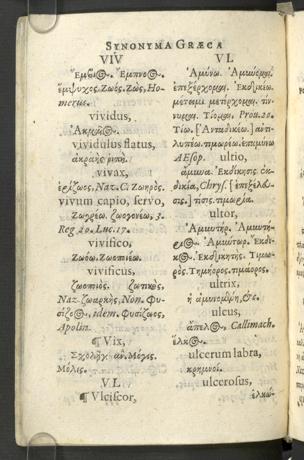 SYNONYMA GRÆCA
VIV
Ἔμβιος. Ἔμπνος.
ἔμψυχος. Ζωός. Ζώς, Ho-
merus.
vividus,
Ἀκμαῖος.
vividulus flatus,
ἀκραὴς ῥιπή.
vivax,
Naz. C. Ζωηρός.
vivum capio, servo,
Ζωγρέω. ζωογονέω, 3.
Reg. 20. Luc. 17.
vivifico,
Ζωόω. Ζωοποιέω.
vivificus,
ζωοποιός. ζωτικός,
Naz. ζωαρκής, Non. Φυ-
σίζοος, idem. Φυσίζωος,
Apolin.
¶ Vix,
Σχολῇ ἄν. Μόγις.
Μόλις.
VL
¶ Vlciscor,
VL
Ἀμύνω. Ἀμύνομαι.
ἐπεξέρχομαι. Ἐκδικέω.
μέτειμι μετέρχομαι. τιν-
νυμαι. Τίομαι, Prov. 20.
Τίω. [Ἀνταδικέω.] ἀντι-
λυπέω. τιμωρέω. ἐπαμύνω
AEsop. ultio,
ἄμυνα. Ἐκδίκησις. ἐκ-
δικία, Chrys. [ἐπεξέλευ-
σις.] τίσις. τιμωρία.
ultor,
Ἀμυντήρ. Ἀμυντή-
ριος. Ἀμύντωρ. Ἔκδι-
κος. Ἐκδικητής. Τιμω-
ρός. Τιμήορος. τιμάορος.
ultrix,
ἡ ἀμυνομένη, &c.
ulcus,
Callimach.
ἕλκος.
ulcerum labra,
κρημνοί.
ulcerosus,
ἑλκώ-